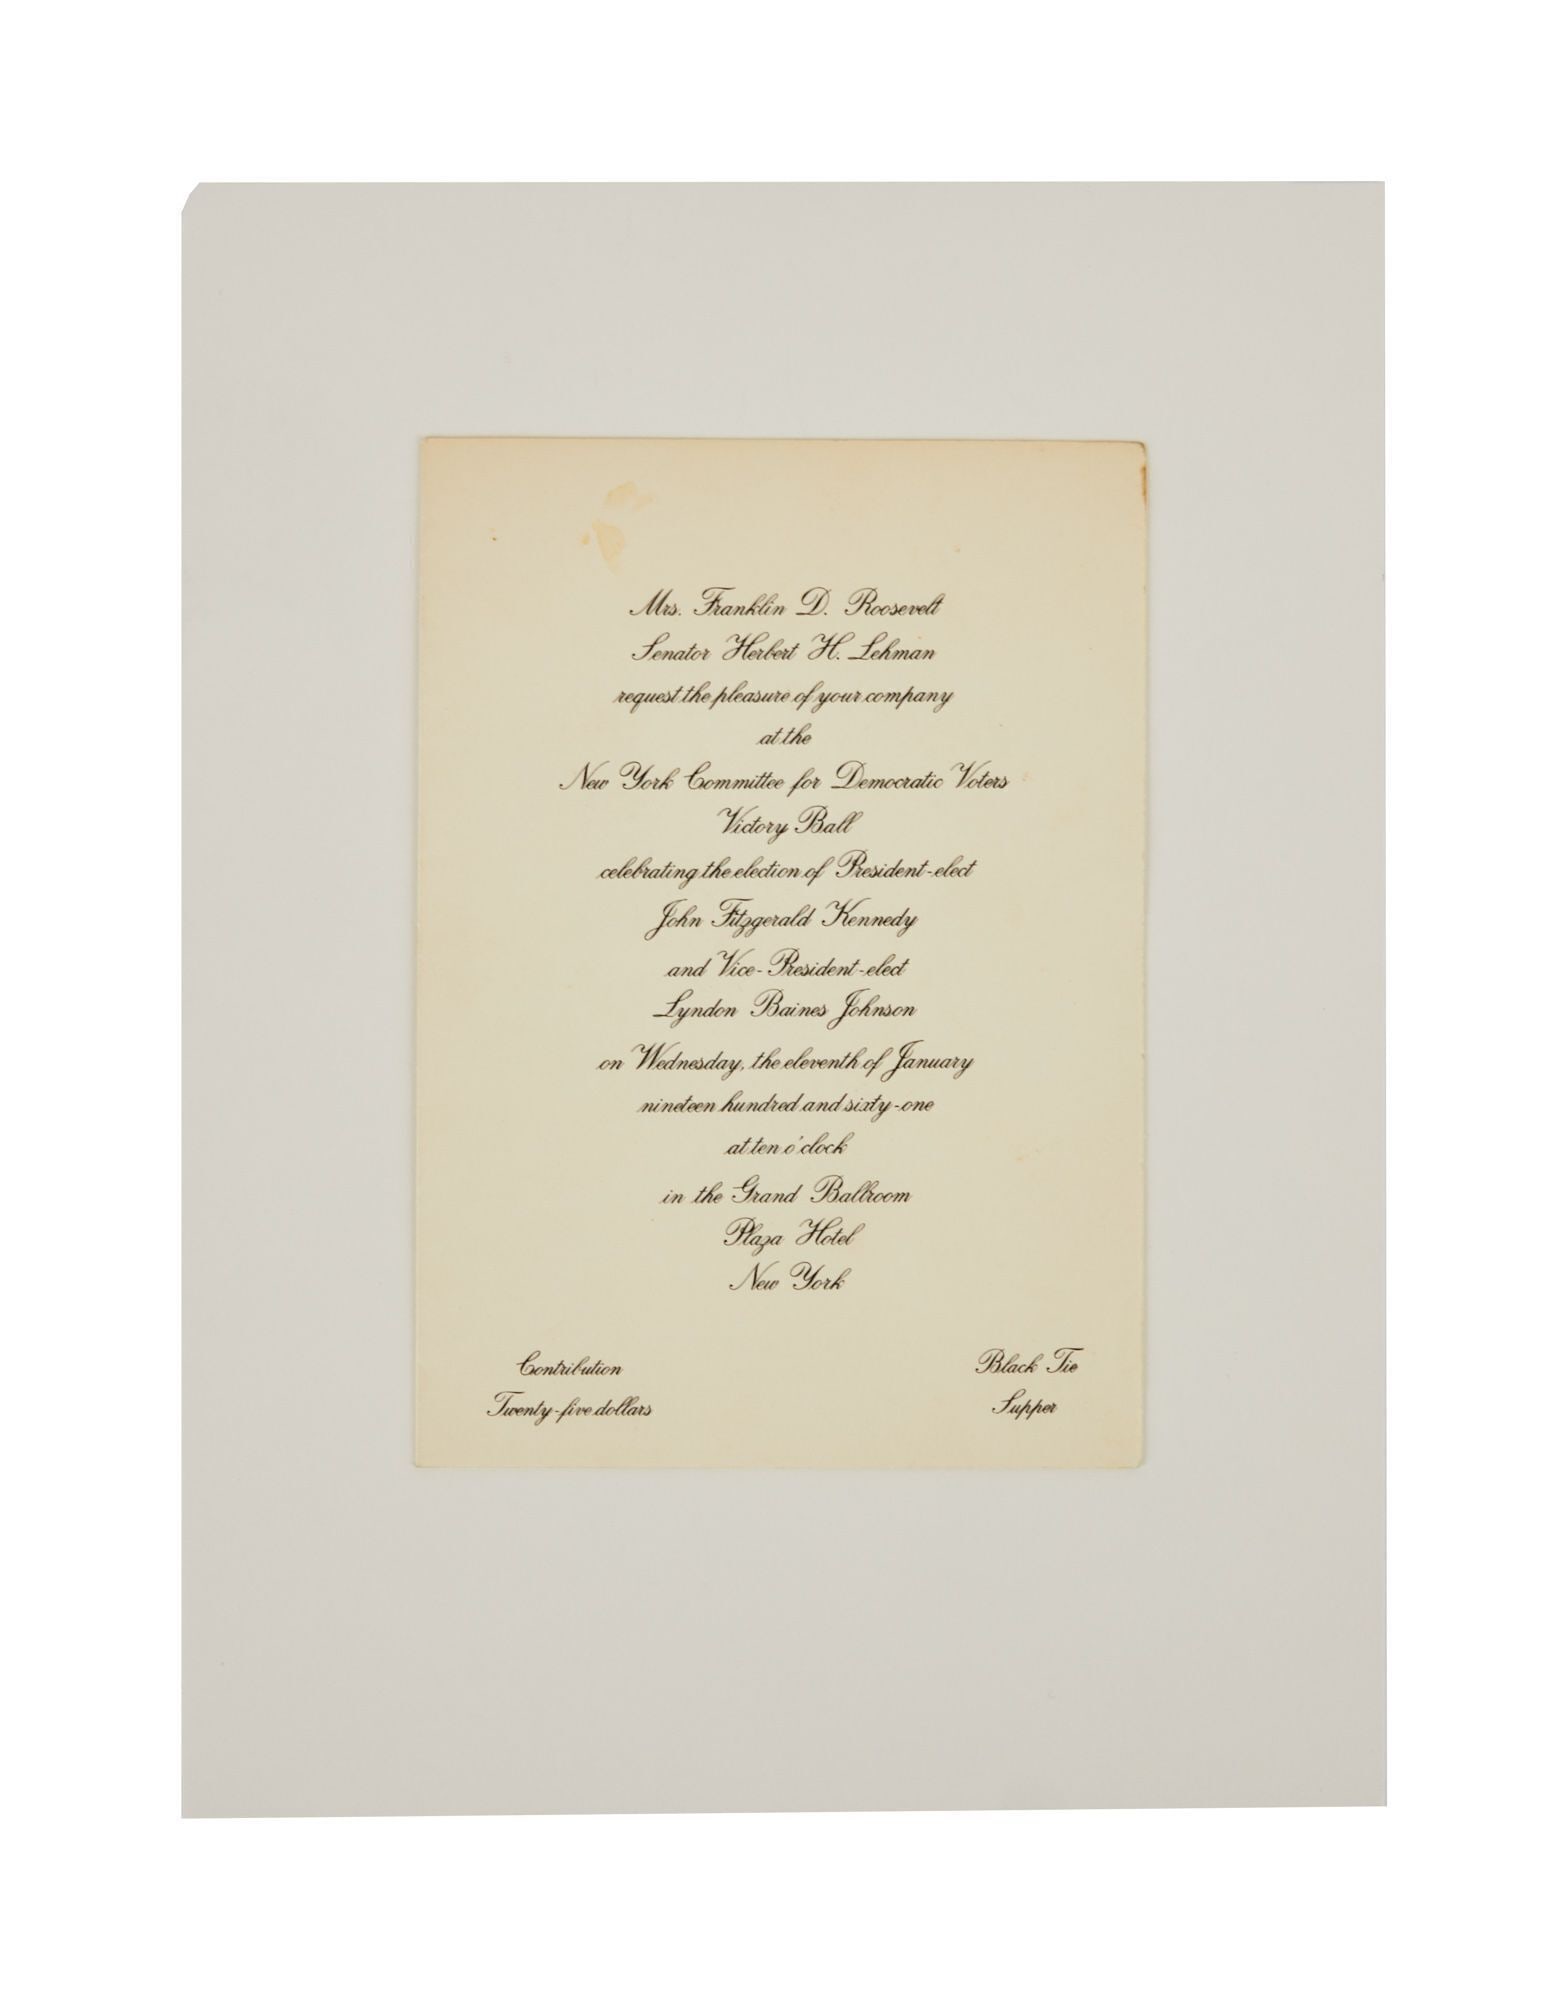 Mrs. Franklin D. Roosevelt
Senator Herbert H. Lehman
request the pleasure of your company
at the
New York Committee for Democratic Voters
Victory Ball
celebrating the election of President-elect
John Fitzgerald Kennedy
and Vice-President-elect
Lyndon Baines Johnson
on Wednesday, the eleventh of January
nineteen hundred and sixty-one
at ten o'clock
in the Grand Ballroom
Plaza Hotel
New York
Contribution
Twenty-five dollars
Black Tie
Supper